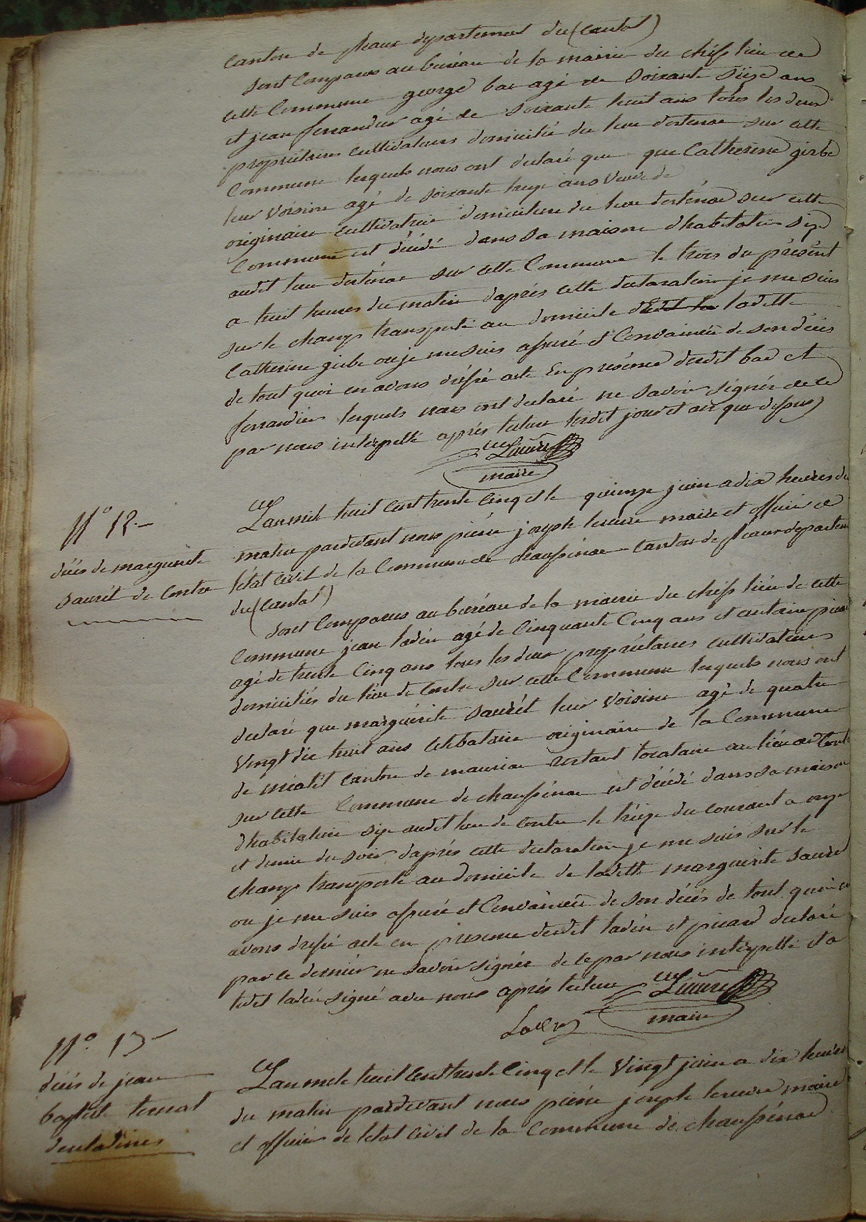 canton de pleaux departement du (cantal)
sont Comparus au bureau de la mairie du chef lieu de
cette Commune george bac agé de soixante seize ans
et jean ferrandier agé de soixante huit ans tous les deux
propriétaires cultivateurs domiciliés du lieu d'ostenac sur cette
Commune lesquels nous ont declaré que que Catherine girbe
leur voisine agé de soixante treize ans veuve de
originaire cultivatrice domiciliée du lieu dostenac sur cette
Commune est décédé dans sa maison d'habitation size
audit lieu dostenac sur cette Commune le trois du présent
a huit heures du matin d'après cette declaration je me suis
sur le champ transporté au domicile de ladite
Catherine girbe ou je me suis assuré et Convaincu de son décès
de tout quoi en avons dréssé acte En présence desdit bac et
ferrandier lesquels nous ont declaré ne savoir signée de ce
par nous intérpellé après lecture lesdit jour et an que dessus
Lescure
maire
N° 12
décès de marguerite
Sauret de Contre
L'an mil huit cent trente Cinq et le quinze juin a dix heures du
matin pardevant nous pierre joseph lescure maire et officié de
l'état civil de la Commune de chaussenac canton de pleaux departement
du (Cantal)
sont Comparus au bureau de la mairie du chef lieu de cette
Commune jean ladeu agé de Cinquante Cinq ans et antoine picard
agé de trente Cinq ans tous les deux propriétaires cultivateurs
domiciliés du lieu de Contre sur cette Commune lesquels nous ont
declaré que marguerite sauret leur voisine agé de quatre
vingt dix huit ans Celibataire originaire de la Commune
de méalét canton de mauriac restant locataire au lieu de Contre
sur cette Commune de chaussenac est décédé dans sa maison
d'habitation size audit lieu de Contre le treize du courant a onze
et demie du soir d'après cette declaration je me suis sur le
champ transporté au domicile de ladite marguerite sauret
ou je me suis assuré et Convaincu de son décès de tout quoi en
avons dréssé acte en présence desdit ladeu et picard declaré
par le dernier ne savoir signée de ce par nous intérpellé et a
ledit ladeu signé avec nous après lecture
Lescure
maire
N° 13
décès de jean
baptiste ternat
L'an mil huit Cent trente Cinq et le Vingt juin a dix heures
du matin pardevant nous pierre joseph lescure maire
et officié de l'état civil de la Commune de chaussénac